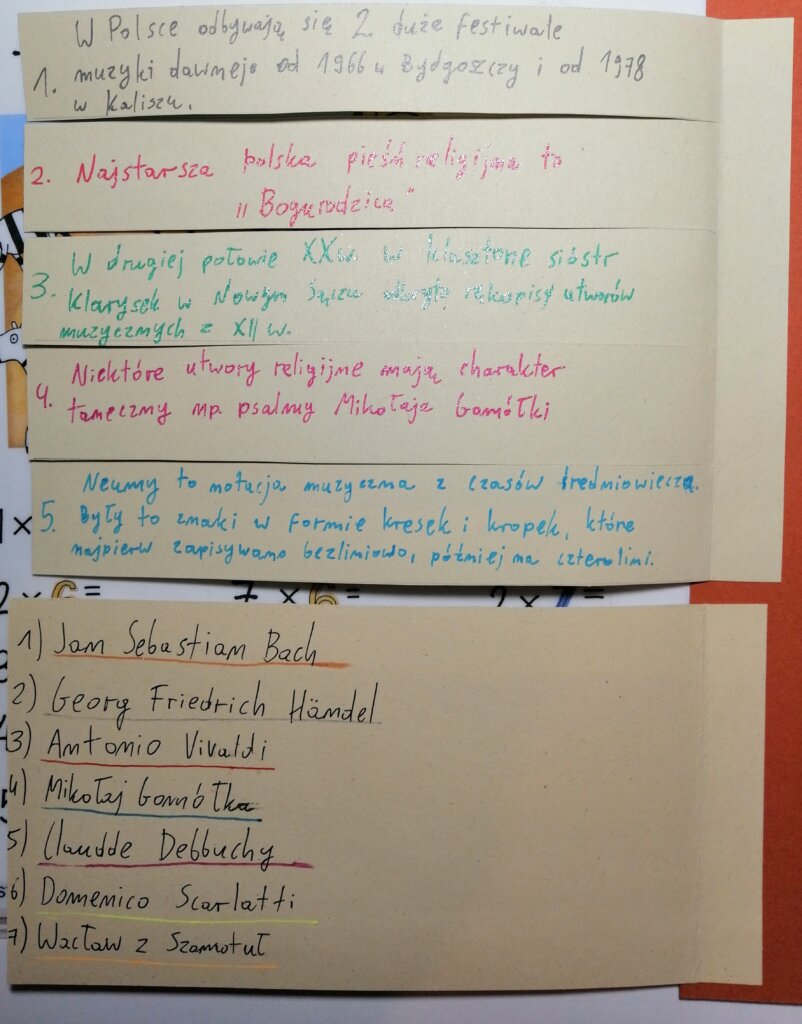 W Polsce odbywają się 2 duże festiwale
1. muzyki dawnej: od 1966 w Bydgoszczy i od 1978
w Kaliszu.
2. Najstarsza polska pieśń religijna to
"Bogurodzica"
W drugiej połowie XXw. w klasztorze sióstr
3. Klarysek w Nowym Sączu odkryto rękopisy utworów
muzycznych z XII w.
Niektóre utwory religijne mają charakter
4. taneczny np. psalmy Mikołaja Gomółki
Neumy to notacja muzyczna z czasów średniowiecza.
5. Były to znaki w formie kresek i kropek, które
najpierw zapisywano bezliniowo, później na czterolinii.
1×
2 × 6 = 7 × 6 = 2 × 7 =
1) Jan Sebastian Bach
2) Georg Friedrich Händel
3) Antonio Vivaldi
4) Mikołaj Gomółka
5) Claudde Debbuchy
6) Domenico Scarlatti
7) Wacław z Szamotuł